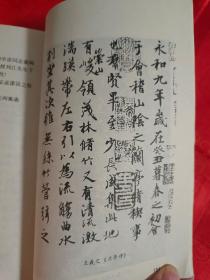 永和九年歲在癸丑暮春之初會
于會稽山陰之蘭亭脩禊事
也群賢畢至少長咸集此地
有峻領茂林脩竹又有清流激
湍暎帶左右引以為流觴曲水
列坐其次雖無絲竹管弦之
王羲之《兰亭序》